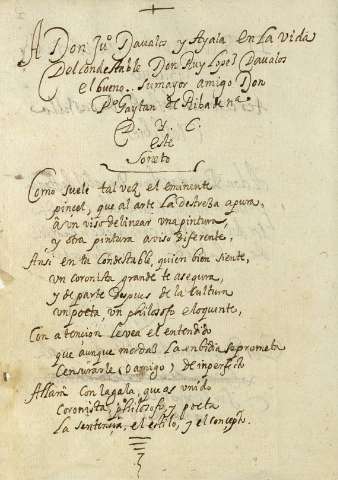 A Don Juº Davalos y Ayala en La Vida
Del Condestable Don Ruy Lopez Davalos
el bueno. Sumayor amigo Don
Pº Gaytan de Ribadenª
D. Y. C.
este
Soneto
Como suele tal vez el eminente
pincel, que al arte La destreza apura,
a un viso delinear vna pintura,
y otra pintura aviso diferente,
Ansi en tu Condestable, quien bien siente,
vn coronista grande te asegura,
y de parte despues de la cultura
vn poeta vn philosofo eloquente,
Con atencion Levea el entendido
que aunque mordaz La inbidia se prometa
Censurarle (o amigo) de inperfecto
Allará con la gala, que as vnido
Coronista, philosofo, y poeta
La sentencia, el estilo, y el concepto.